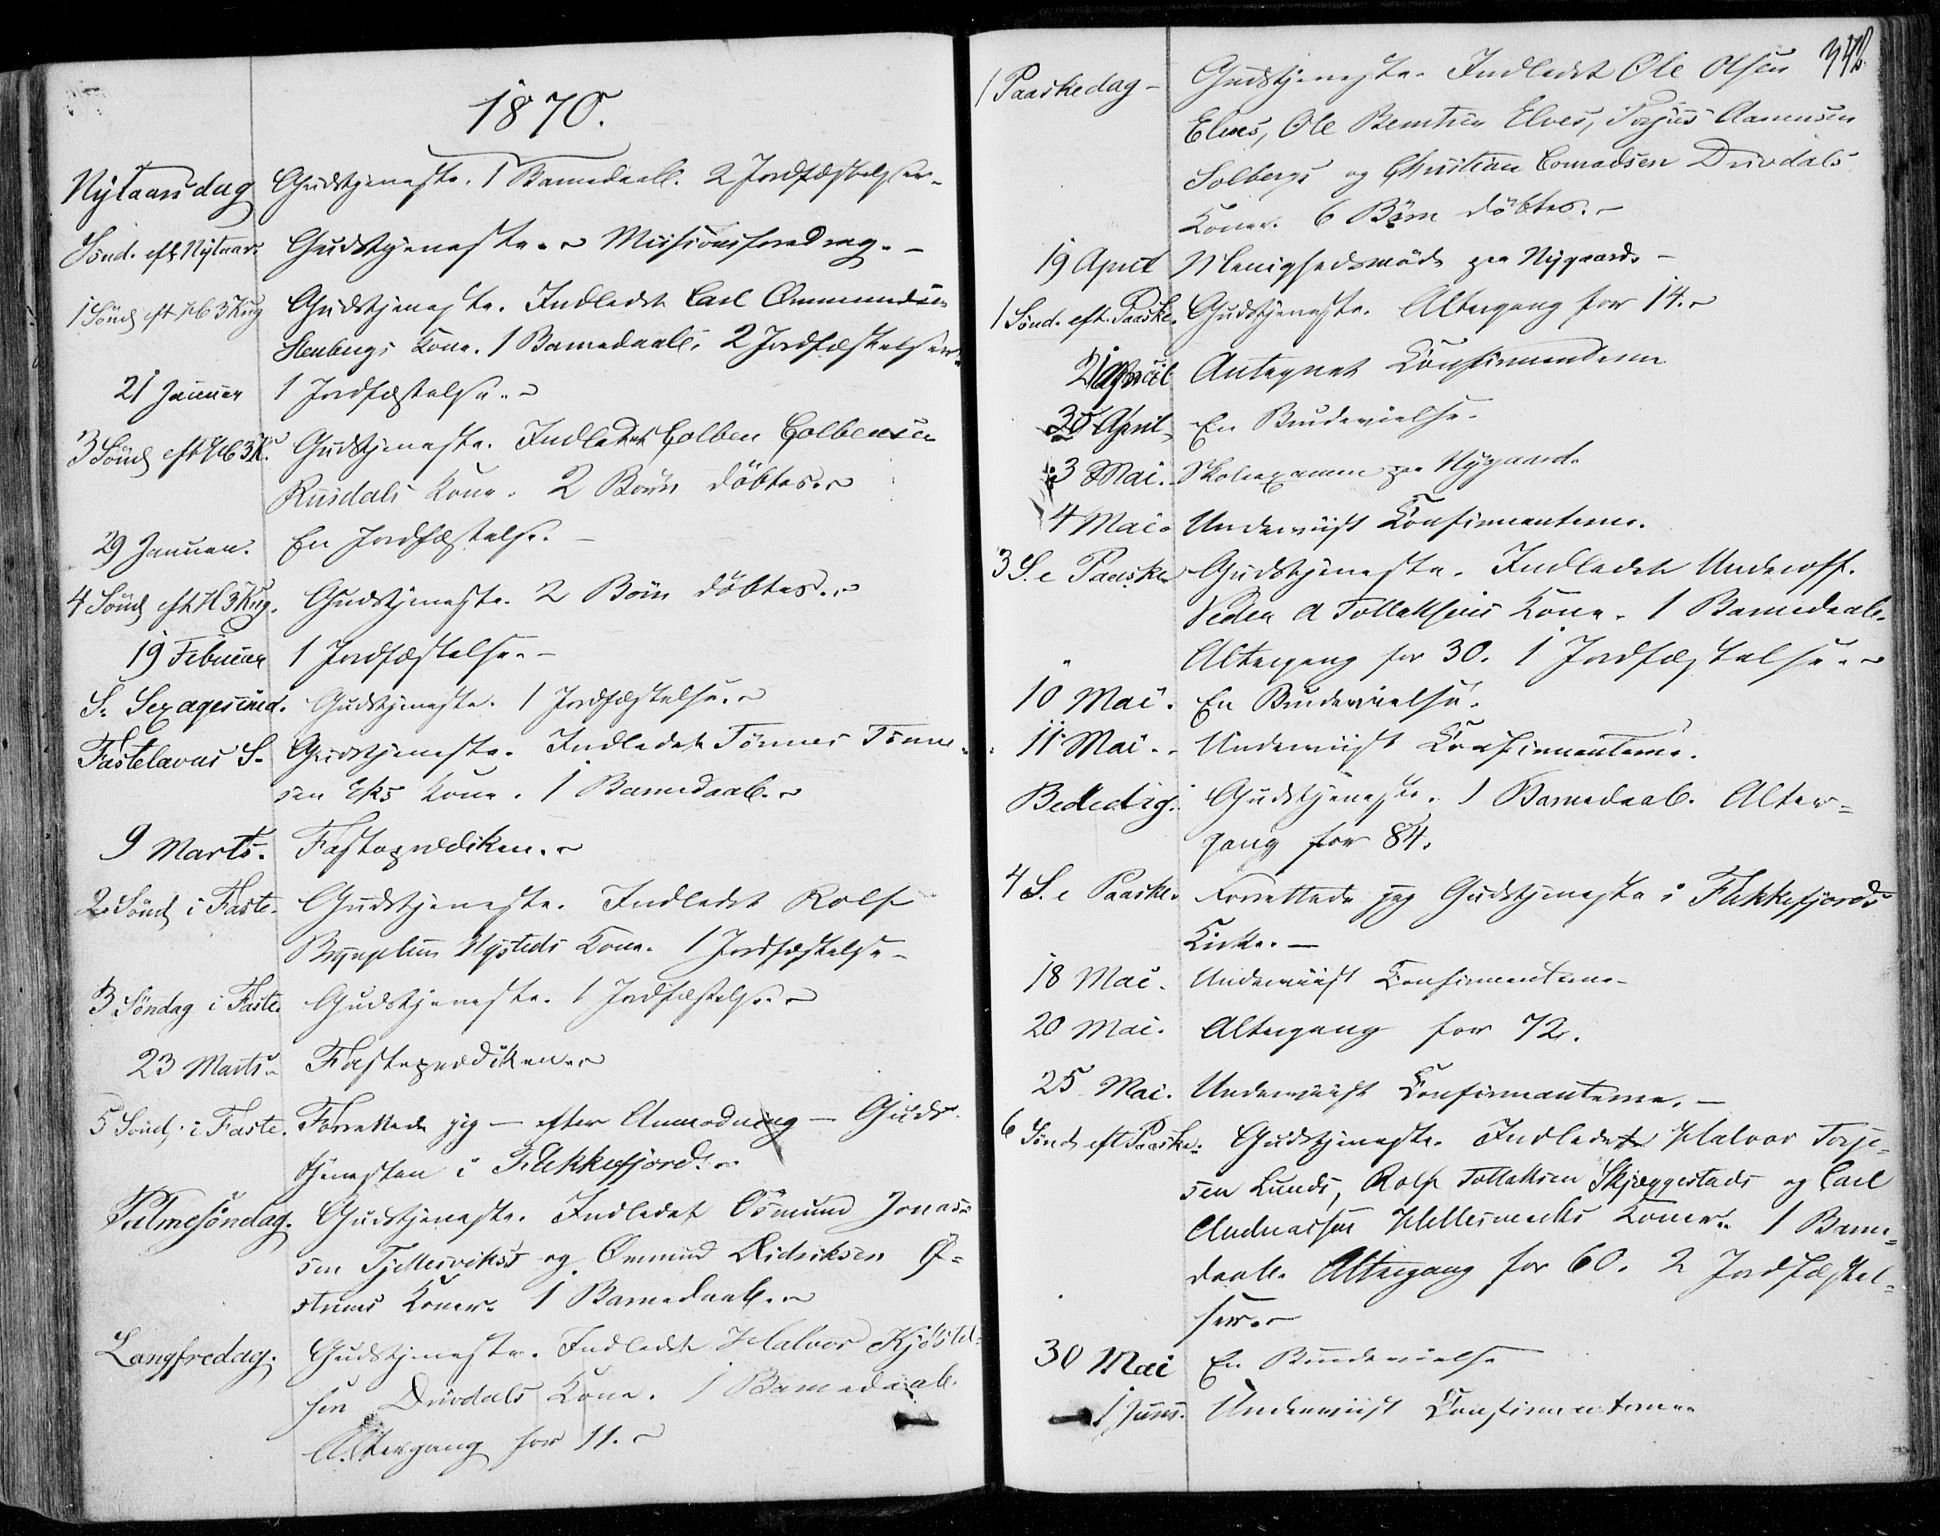 1870.
Nytaarsdag Gudstjeneste. 1 Barnedaab. 2 Jordfæstelser.
Sönd. eft Nytaar. Gudstjeneste. Missionsforedrag.
1 Sönd eft H 3 Kng Gudstjeneste. Indledet Carl Ommundsen
Stenbergs Kone. 1 Barnedaab. 2 Jordfæstelser.
21 Januar 1 Jordfæstelse.
3 Sönd eft H 3 K. Gudstjeneste. Indledet Colben Colbensen
Rusdals Kone. 2 Börn döbtes.
29 Januar. En Jordfæstelse.
4 Sönd eft H 3 Kng. Gudstjeneste. 2 Börn döbtes.
19 Februar 1 Jordfæstelse.
S. Sexagesima. Gudstjeneste. 1 Jordfæstelse.
Fastelavns S. Gudstjeneste. Indledet Tönnes Tönne-
sen Eks Kone. 1 Barnedaab.
9 Marts. Fasteprædiken.
2 Sönd i Faste. Gudstjeneste. Indledet Rolf
Nysteds Kone. 1 Jordfæstelse
3 Söndag i Faste. Gudstjeneste. 1 Jordfæstelse.
23 Marts. Fasteprædiken.
5 Sönd. i Faste. Forrettede jeg - efter Anmodning - Guds-
tjenesten i Flekkefjord.
Palmesöndag. Gudstjeneste. Indledet Osmund Jonas-
sen Fjellesviks og Ommund Didriksen
Koner. 1 Barnedaab.
Langfredag. Gudstjeneste. Indledet Halvor Kjöstel-
sen Duvdals Kone. 1 Barnedaab.
Altergang for 11.
342
1 Paaskedag - Gudstjeneste. Indledet Ole Olsen
Elves, Ole Berntsen Elves, Torjus Aanensen
Solbergs og Christian Conradsen Duvdals
Koner. 6 Börn döbtes.
19 April Menighedsmöde paa Nygaard.
1 Sönd. eft. Paaske. Gudstjeneste. Altergang for 14.
21 April Antegnet Konfirmanderne
30 April En Brudevielse.
3 Mai. Skoleexamen paa Nygaard.
4 Mai. Underviist Konfirmanterne.
3 S. e Paaske Gudstjeneste. Indledet Underoff.
Peder A Tollaksens Kone. 1 Barnedaab.
Altergang for 30. 1 Jordfæstelse.
10 Mai. En Brudevielse.
11 Mai. Underviist Konfirmanterne.
Bededag. Gudstjeneste. 1 Barnedaab. Alter-
gang for 84.
4 S. e Paaske. Forrettede jeg Gudstjeneste i Flekkefjords
Kirke.
18 Mai. Underviist Konfirmanterne
20 Mai. Altergang for 72.
25 Mai. Underviist Konfirmanterne.
6 Sönd. eft Paaske. Gudstjeneste. Indledet Halvor Torje-
sen Lunds, Rolf Tollaksen Skjeggestads og Carl
Andreassen Hellesmarks Koner. 1 Barne-
daab. Altergang for 60. 2 Jordfæstel-
ser.
30 Mai En Brudevielse
1 Juni. Underviist Konfirmanterne